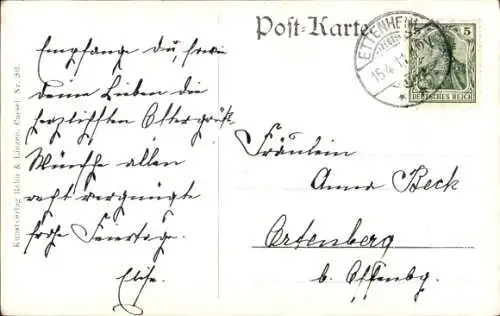 Post-Karte
ETTENHEIM
15.4.11
5
DEUTSCHES REICH
Empfange du, sowie
deine Lieben die
herzlichsten Ostergrüße
Wünsche allen
recht vergnügte
frohe Feiertage.
Elise.
Fräulein
Anna Beck
Ortenberg
b. Offenbg.
Kunstverlag Röhn & Linzen, Cassel. Nr. 201.